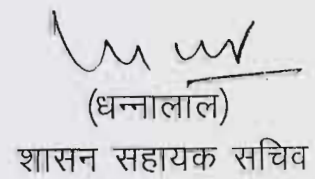 (धन्नालाल)
शासन सहायक सचिव